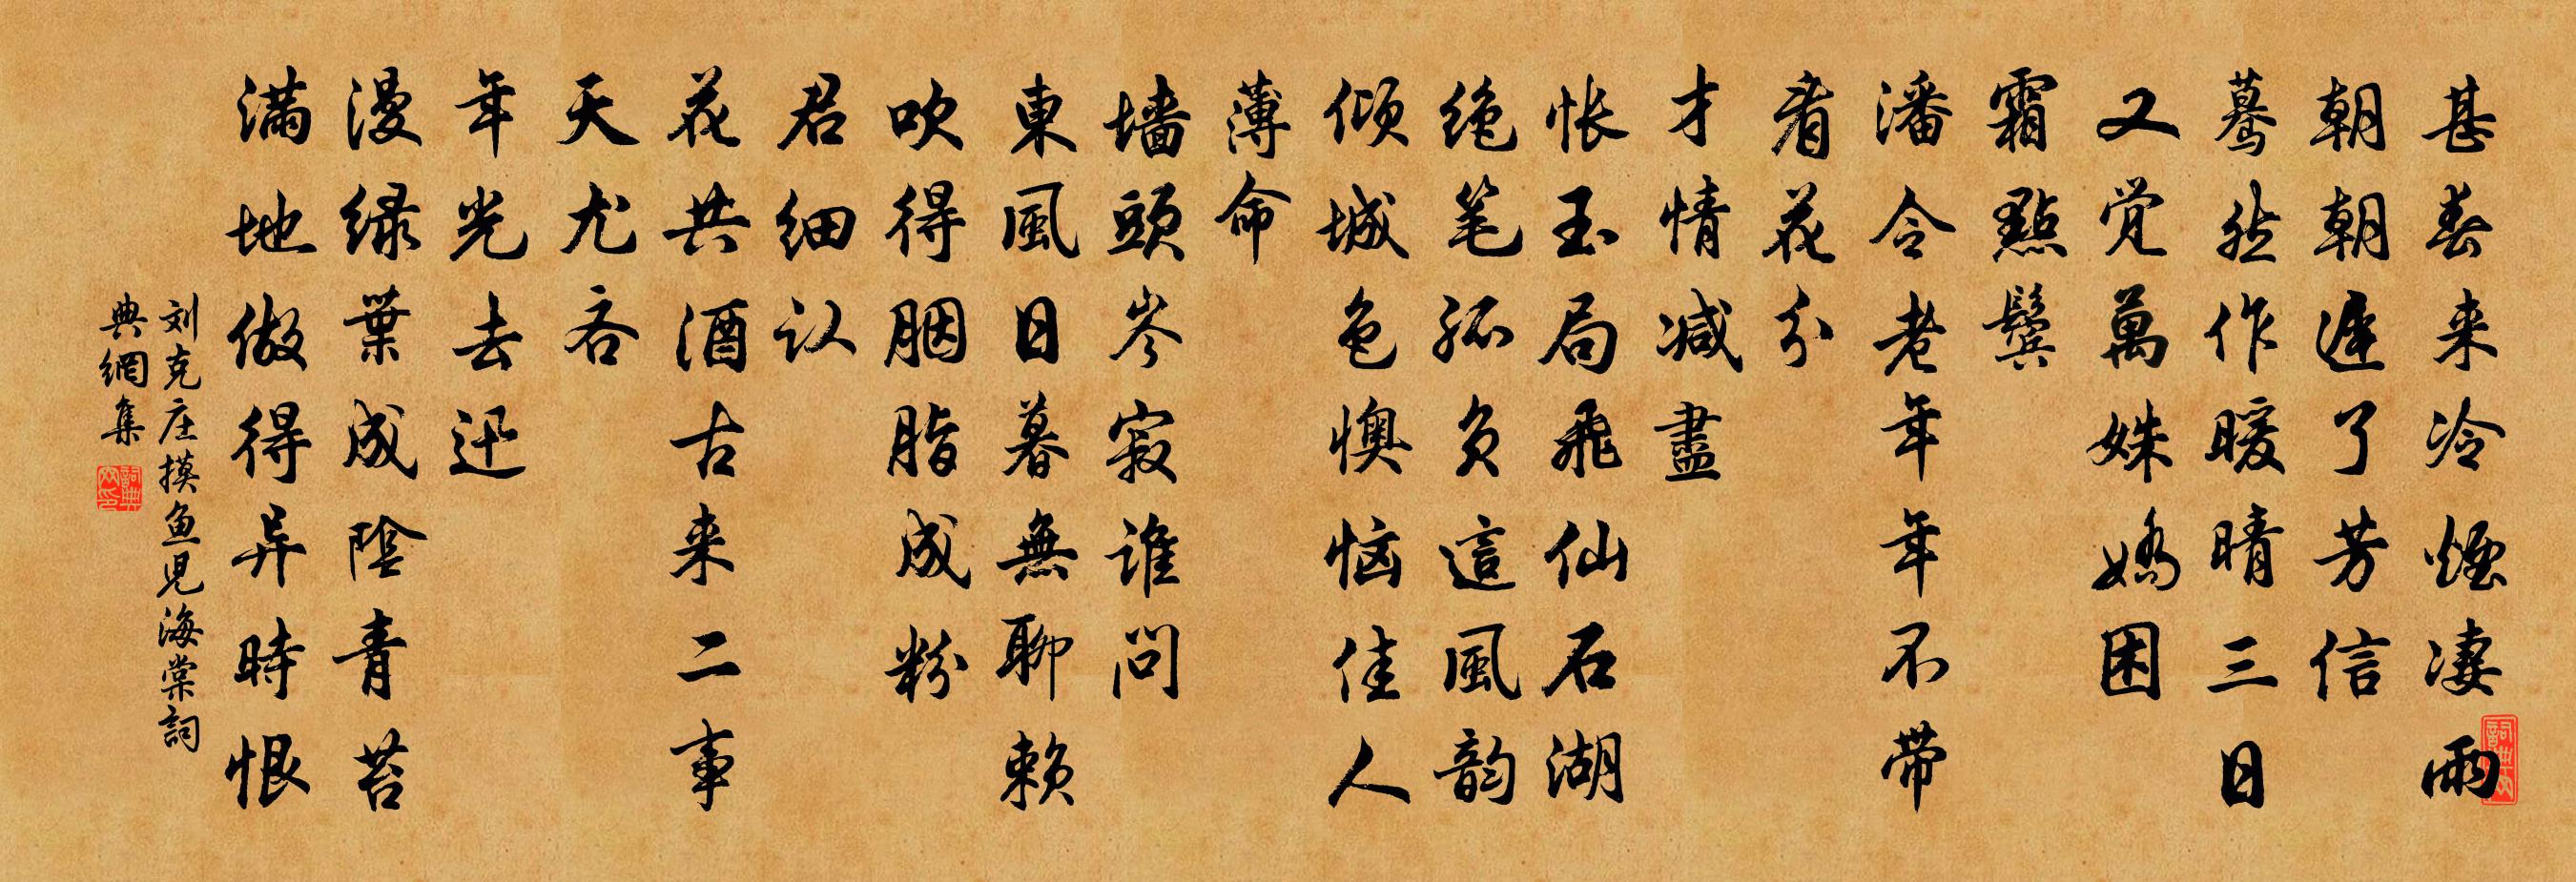 甚春来冷煙凄雨
朝朝遲了芳信
蓦然作暖晴三日
又觉萬姝嬌困
霜點鬓
潘令老年年不带
看花分
才情减盡
怅玉局飛仙石湖
绝笔孤负這風韵
倾城色懊恼佳人
薄命
墙頭岑寂谁问
東風日暮無聊赖
吹得胭脂成粉
君细认
花共酒古来二事
天尤吝
年光去迅
漫绿葉成陰青苔
满地做得异時恨
刘克庄摸鱼児海棠詞
典網集
詞典网印
詞典网